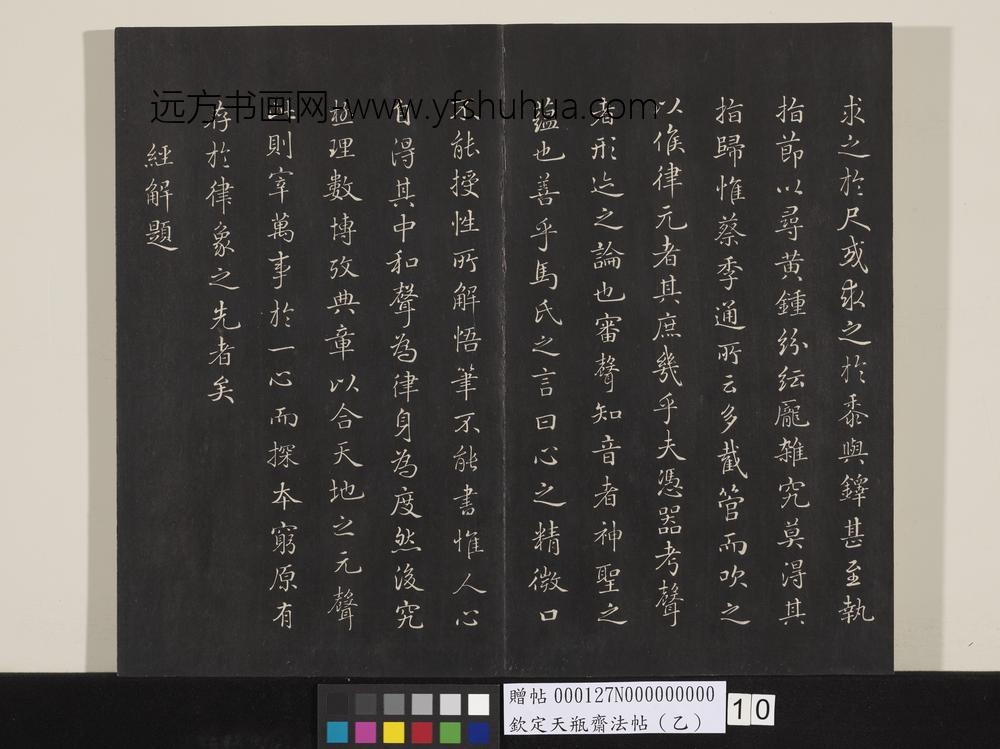 求之於尺或求之於黍與鐸甚至執
指節以尋黃鍾紛紜龐雜究莫得其
指歸惟蔡季通所云多截管而吹之
以俟律元者其庶幾乎夫憑器考聲
者形迹之論也審聲知音者神聖之
蘊也善乎馬氏之言曰心之精微口
不能授性所解悟筆不能書惟人心
自得其中和聲為律身為度然後究
極理數博攷典章以合天地之元聲
則宰萬事於一心而探本窮原有
存於律象之先者矣
經解題
远方书画网-www.yfshuhua.com
贈帖 000127N000000000
欽定天瓶齋法帖(乙)
10